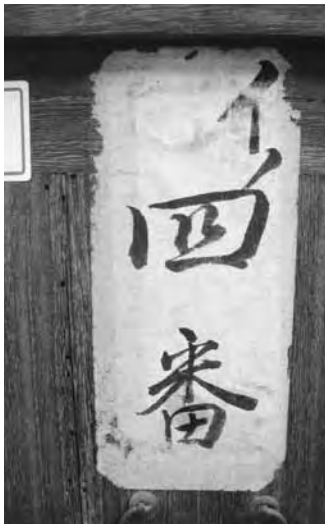 イ
四番